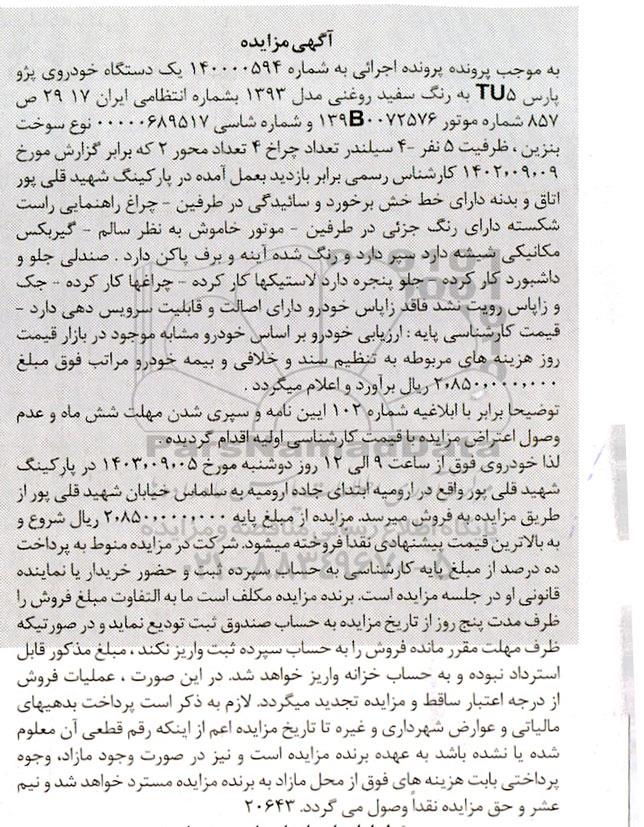 آگهی مزایده
به موجب پرونده پرونده اجرائی به شماره ۱۴۰۰۰۰۵۹۴ یک دستگاه خودروی پژو
پارس TU۵ به رنگ سفید روغنی مدل ۱۳۹۳ بشماره انتظامی ایران ۱۷ ۲۹ ص
۸۵۷ شماره موتور ۱۳۹B۰۰۷۲۵۷۶ و شماره شاسی ۰۰۰۰۰۶۸۹۵۱۷ نوع سوخت
بنزین ، ظرفیت ۵ نفر -۴ سیلندر تعداد چراخ ۴ تعداد محور ۲ که برابر گزارش مورخ
۱۴۰۲،۰۹،۰۹ کارشناس رسمی برابر بازدید بعمل آمده در پارکینگ شهید قلی پور
اتاق و بدنه دارای خط خش برخورد و سائیدگی در طرفین - چراغ راهنمایی راست
شکسته دارای رنگ جزئی در طرفین - موتور خاموش به نظر سالم - گیربکس
مکانیکی شیشه دارد سپر دارد و رنگ شده آینه و برف پاکن دارد . صندلی جلو و
داشبورد کار کرده - جلو پنجره دارد لاستیکها کار کرده - چراغها کار کرده - جک
و زاپاس رویت نشد فاقد زاپاس خودرو دارای اصالت و قابلیت سرویس دهی دارد -
قیمت کارشناسی پایه : ارزیابی خودرو بر اساس خودرو مشابه موجود در بازار قیمت
روز هزینه های مربوطه به تنظیم سند و خلافی و بیمه خودرو مراتب فوق مبلغ
۲،۸۵۰،۰۰۰،۰۰۰ ریال برآورد و اعلام میگردد .
توضیحا برابر با ابلاغیه شماره ۱۰۲ ایین نامه و سپری شدن مهلت شش ماه و عدم
وصول اعتراض مزایده با قیمت کارشناسی اولیه اقدام گردیده .
لذا خودروی فوق از ساعت ۹ الی ۱۲ روز دوشنبه مورخ ۱۴۰۳،۰۹،۰۵ در پارکینگ
شهید قلی پور واقع در ارومیه ابتدای جاده ارومیه به سلماس خیابان شهید قلی پور از
طریق مزایده به فروش میرسد. مزایده از مبلغ پایه ۲،۸۵۰،۰۰۰،۰۰۰ ریال شروع و
به بالاترین قیمت پیشنهادی نقدا فروخته میشود. شرکت در مزایده منوط به پرداخت
ده درصد از مبلغ پایه کارشناسی به حساب سپرده ثبت و حضور خریدار یا نماینده
قانونی او در جلسه مزایده است. برنده مزایده مکلف است ما به التفاوت مبلغ فروش را
ظرف مدت پنج روز از تاریخ مزایده به حساب صندوق ثبت تودیع نماید و در صورتیکه
ظرف مهلت مقرر مانده فروش را به حساب سپرده ثبت واریز نکند ، مبلغ مذکور قابل
استرداد نبوده و به حساب خزانه واریز خواهد شد. در این صورت ، عملیات فروش
از درجه اعتبار ساقط و مزایده تجدید میگردد. لازم به ذکر است پرداخت بدهیهای
مالیاتی و عوارض شهرداری و غیره تا تاریخ مزایده اعم از اینکه رقم قطعی آن معلوم
شده یا نشده باشد به عهده برنده مزایده است و نیز در صورت وجود مازاد، وجوه
پرداختی بابت هزینه های فوق از محل مازاد به برنده مزایده مسترد خواهد شد و نیم
عشر و حق مزایده نقداً وصول می گردد. ۲۰۶۴۳